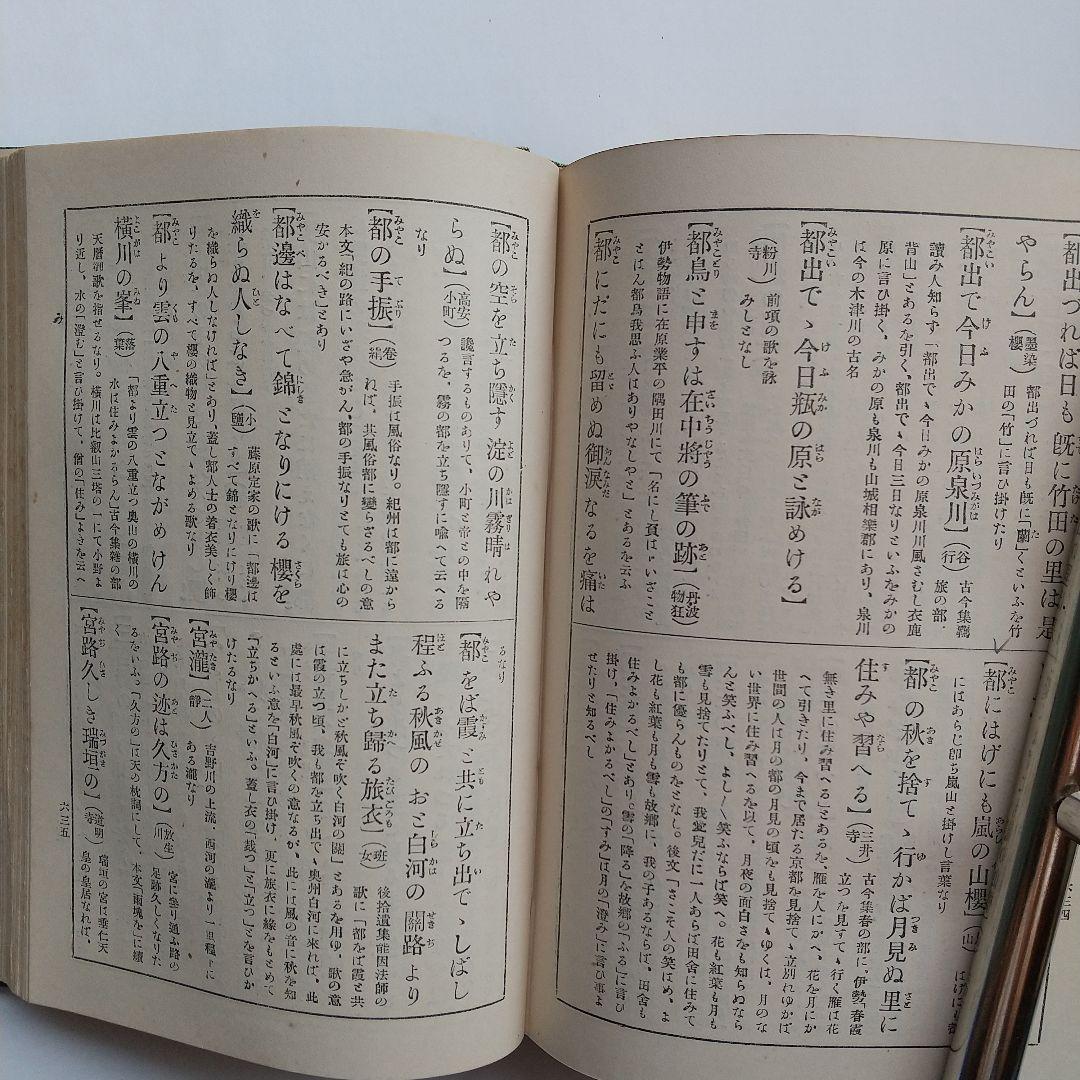 【都出づれば日も既に竹田の里は是
やらん】（墨染櫻） 都出づれば日も既に「蘭」くといふを竹
田の「竹」に言ひ掛けたり
【都出で今日みかの原泉川】（谷行） 古今集覊旅の部、
讀み人知らず「都出でゝ今日みかの原泉川川風さむし衣鹿
背山」とあるを引く、都出でゝ今日三日なりといふをみかの
原に言ひ掛く、みかの原も泉川も山城相樂郡にあり、泉川
は今の木津川の古名
【都出でゝ今日瓶の原と詠めける】
（粉川寺） 前項の歌を詠
みしとなし
【都鳥と申すは在中將の筆の跡】（丹波物狂）
伊勢物語に在原業平の隅田川にて「名にし負はゞいざこと
とはん都鳥我思ふ人はありやなしやと」とあるを云ふ
【都にだにも留めぬ御涙なるを痛は
【都にはげにも嵐の山櫻】（山）
にはあらじ卽ち嵐山と掛けし言葉なり
【都の秋を捨てゝ行かば月見ぬ里に
住みや習へる】（三井寺） 古今集春の部に、伊勢「春霞
立つを見すてゝ行く雁は花
無き里に住み習へる」とあるを、雁を人にかへ、花を月にか
へて引きたり、今まで居たる京都を見捨てゝ立別れゆかば
世間の人は月の都の月見の頃をも見捨てゝゆくは、月のな
い世界に住み習へるを以て、月夜の面白さをも知らぬなら
んと笑ふべし、よし〳〵笑ふならば笑へ。花も紅葉も月も
雪も見捨てたりとて、我愛兒だに一人あらば田舍に住みて
も都に優らんものをとなし。後文「まさこそ人の笑はめ、よ
し花も紅葉も月も雪も故鄕に、我の子あるならば、田舍も
住みよかるべし」とあり。雪の「降る」を故鄕の「ふる」に言ひ
掛け、「住みよかるべし」の「すみ」は月の「澄み」に言ひ寄よ
せたりと知るべし
【都の空を立ち隱す淀の川霧晴れや
らぬ】（高安小町） 讒言するものありて、小町と帝との中を隔
つるを、霧の都を立ち隱すに喩へて云へる
なり
【都の手振】（卷絹） 手振は風俗なり。紀州は都に遠から
れば、其風俗都に變らざるべしの意
本文「紀の路にいざや急がん、都の手振なりとても旅は心の
安かるべき」とあり
【都邊はなべて錦となりにける櫻を
織らぬ人しなき】（小鹽） 藤原定家の歌に「都邊は
すべて錦となりにけり櫻
を織らぬ人しなければ」とあり、蓋し都人士の着衣美しく飾
りたるを、すべて櫻の織物と見立てゝよめる歌なり
【都より雲の八重立つとながめけん
橫川の峯】（落葉） 「都より雲の八重立つ奧山の橫川の
水は住みよかるらん」古今集雜の部
天曆御歌を指せるなり。橫川は比叡山三塔の一にて小野よ
り近し、水の「澄む」と言ひ掛けて、僧の「住み」よきを云へ
るなり
【都をば霞と共に立ち出でゝしばし
程ふる秋風のおと白河の關路より
また立ち歸る旅衣】（班女） 後拾遺集能因法師の
歌に「都をば霞と共
に立ちしかど秋風ぞ吹く白河の關」とあるを用ゆ、歌の意
は霞の立つ頃、我も都を立ち出でゝ奧州白河に來れば、此
處には最早秋風ぞ吹くの意なるが、此には風の音に秋を知
るといふ意を「白河」に言ひ掛け、更に旅衣に緣をもとめて
「立ちかへる」といふ。蓋し衣の「裁つ」と「立つ」とを言ひか
けたるなり
【宮瀧】（二人靜） 吉野川の上流、西河の瀧より一里程に
ある瀧なり
【宮路の迹は久方の】（放生川） 宮に參り通ふ路の
足跡久しくなりた
るをいふ。「久方の」は天の枕詞にして、本文「雨塊を」に續
く
【宮路久しき瑞垣の】（道明寺） 瑞垣の宮は垂仁天
皇の皇居なれば、
み
六三五